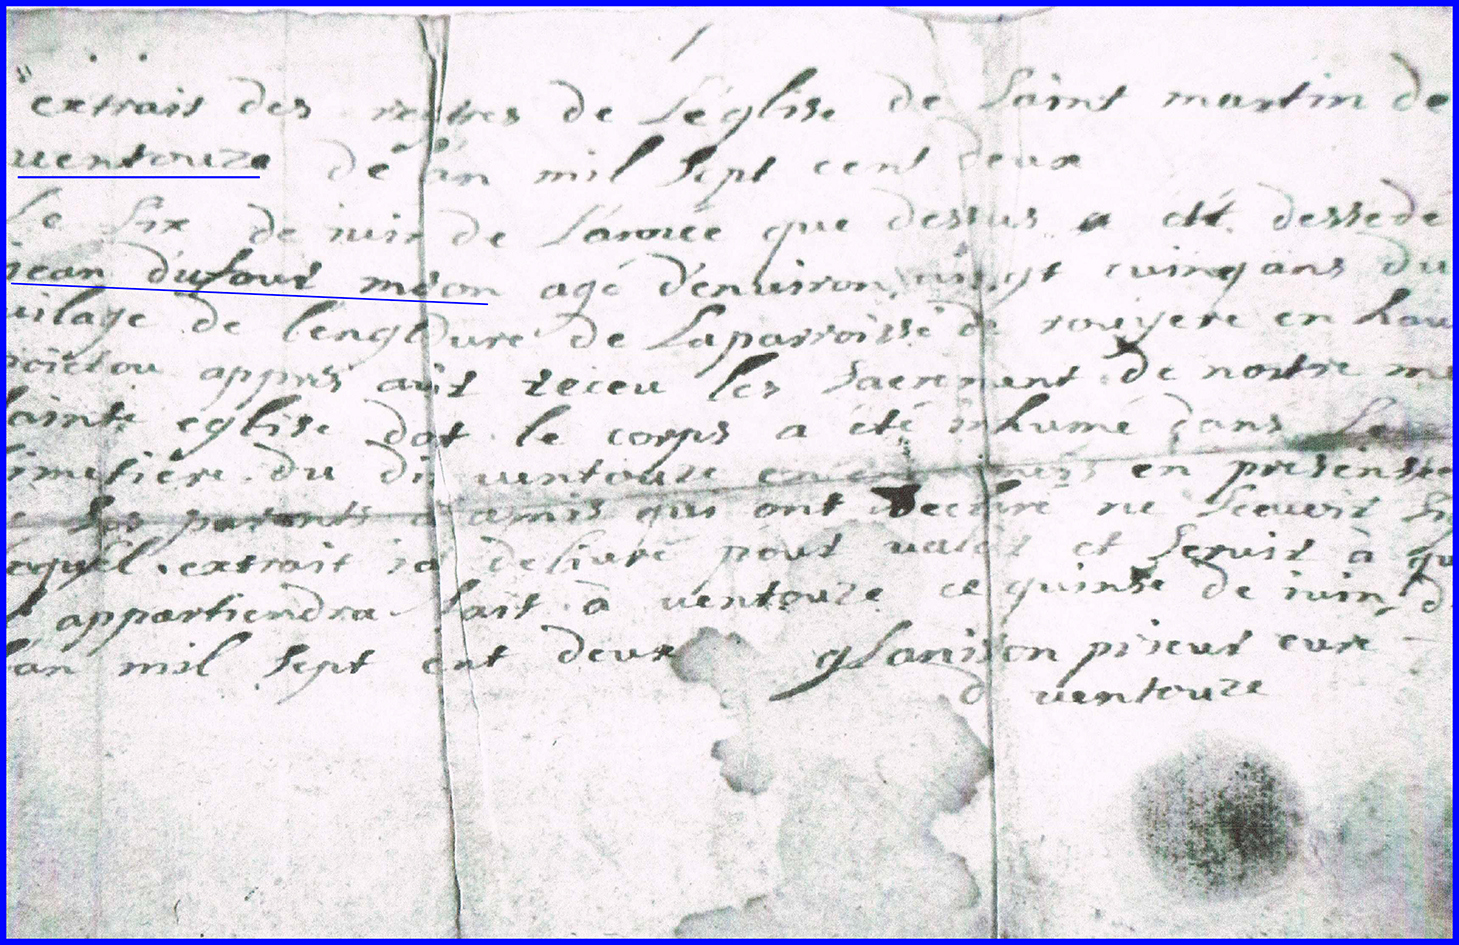 extrait des regtres de Leglise de Saint martin de
uentouze de l'an mil sept cent deux
Le six de iuin de Lannee que dessus a eté dessedé
jean dufour mason agé d'enuiron uingt cuinq ans du
uilage de lengloure de Laparroisse de rouyere en hau
poictou appres auoit receu les sacremant de nostre me
sainte eglise dot le corps a été inhumé dans Le
simetiere du dit uentouze en presensse
e ses parants & amis qui ont declaré ne scauoir sig
lequel extrait ie deliuré pour ualoir et seruir à qu
il appartiendra fait à uentouze ce quinse de iuin d
lan mil sept cent deux glanison prieur cure
d uentouze